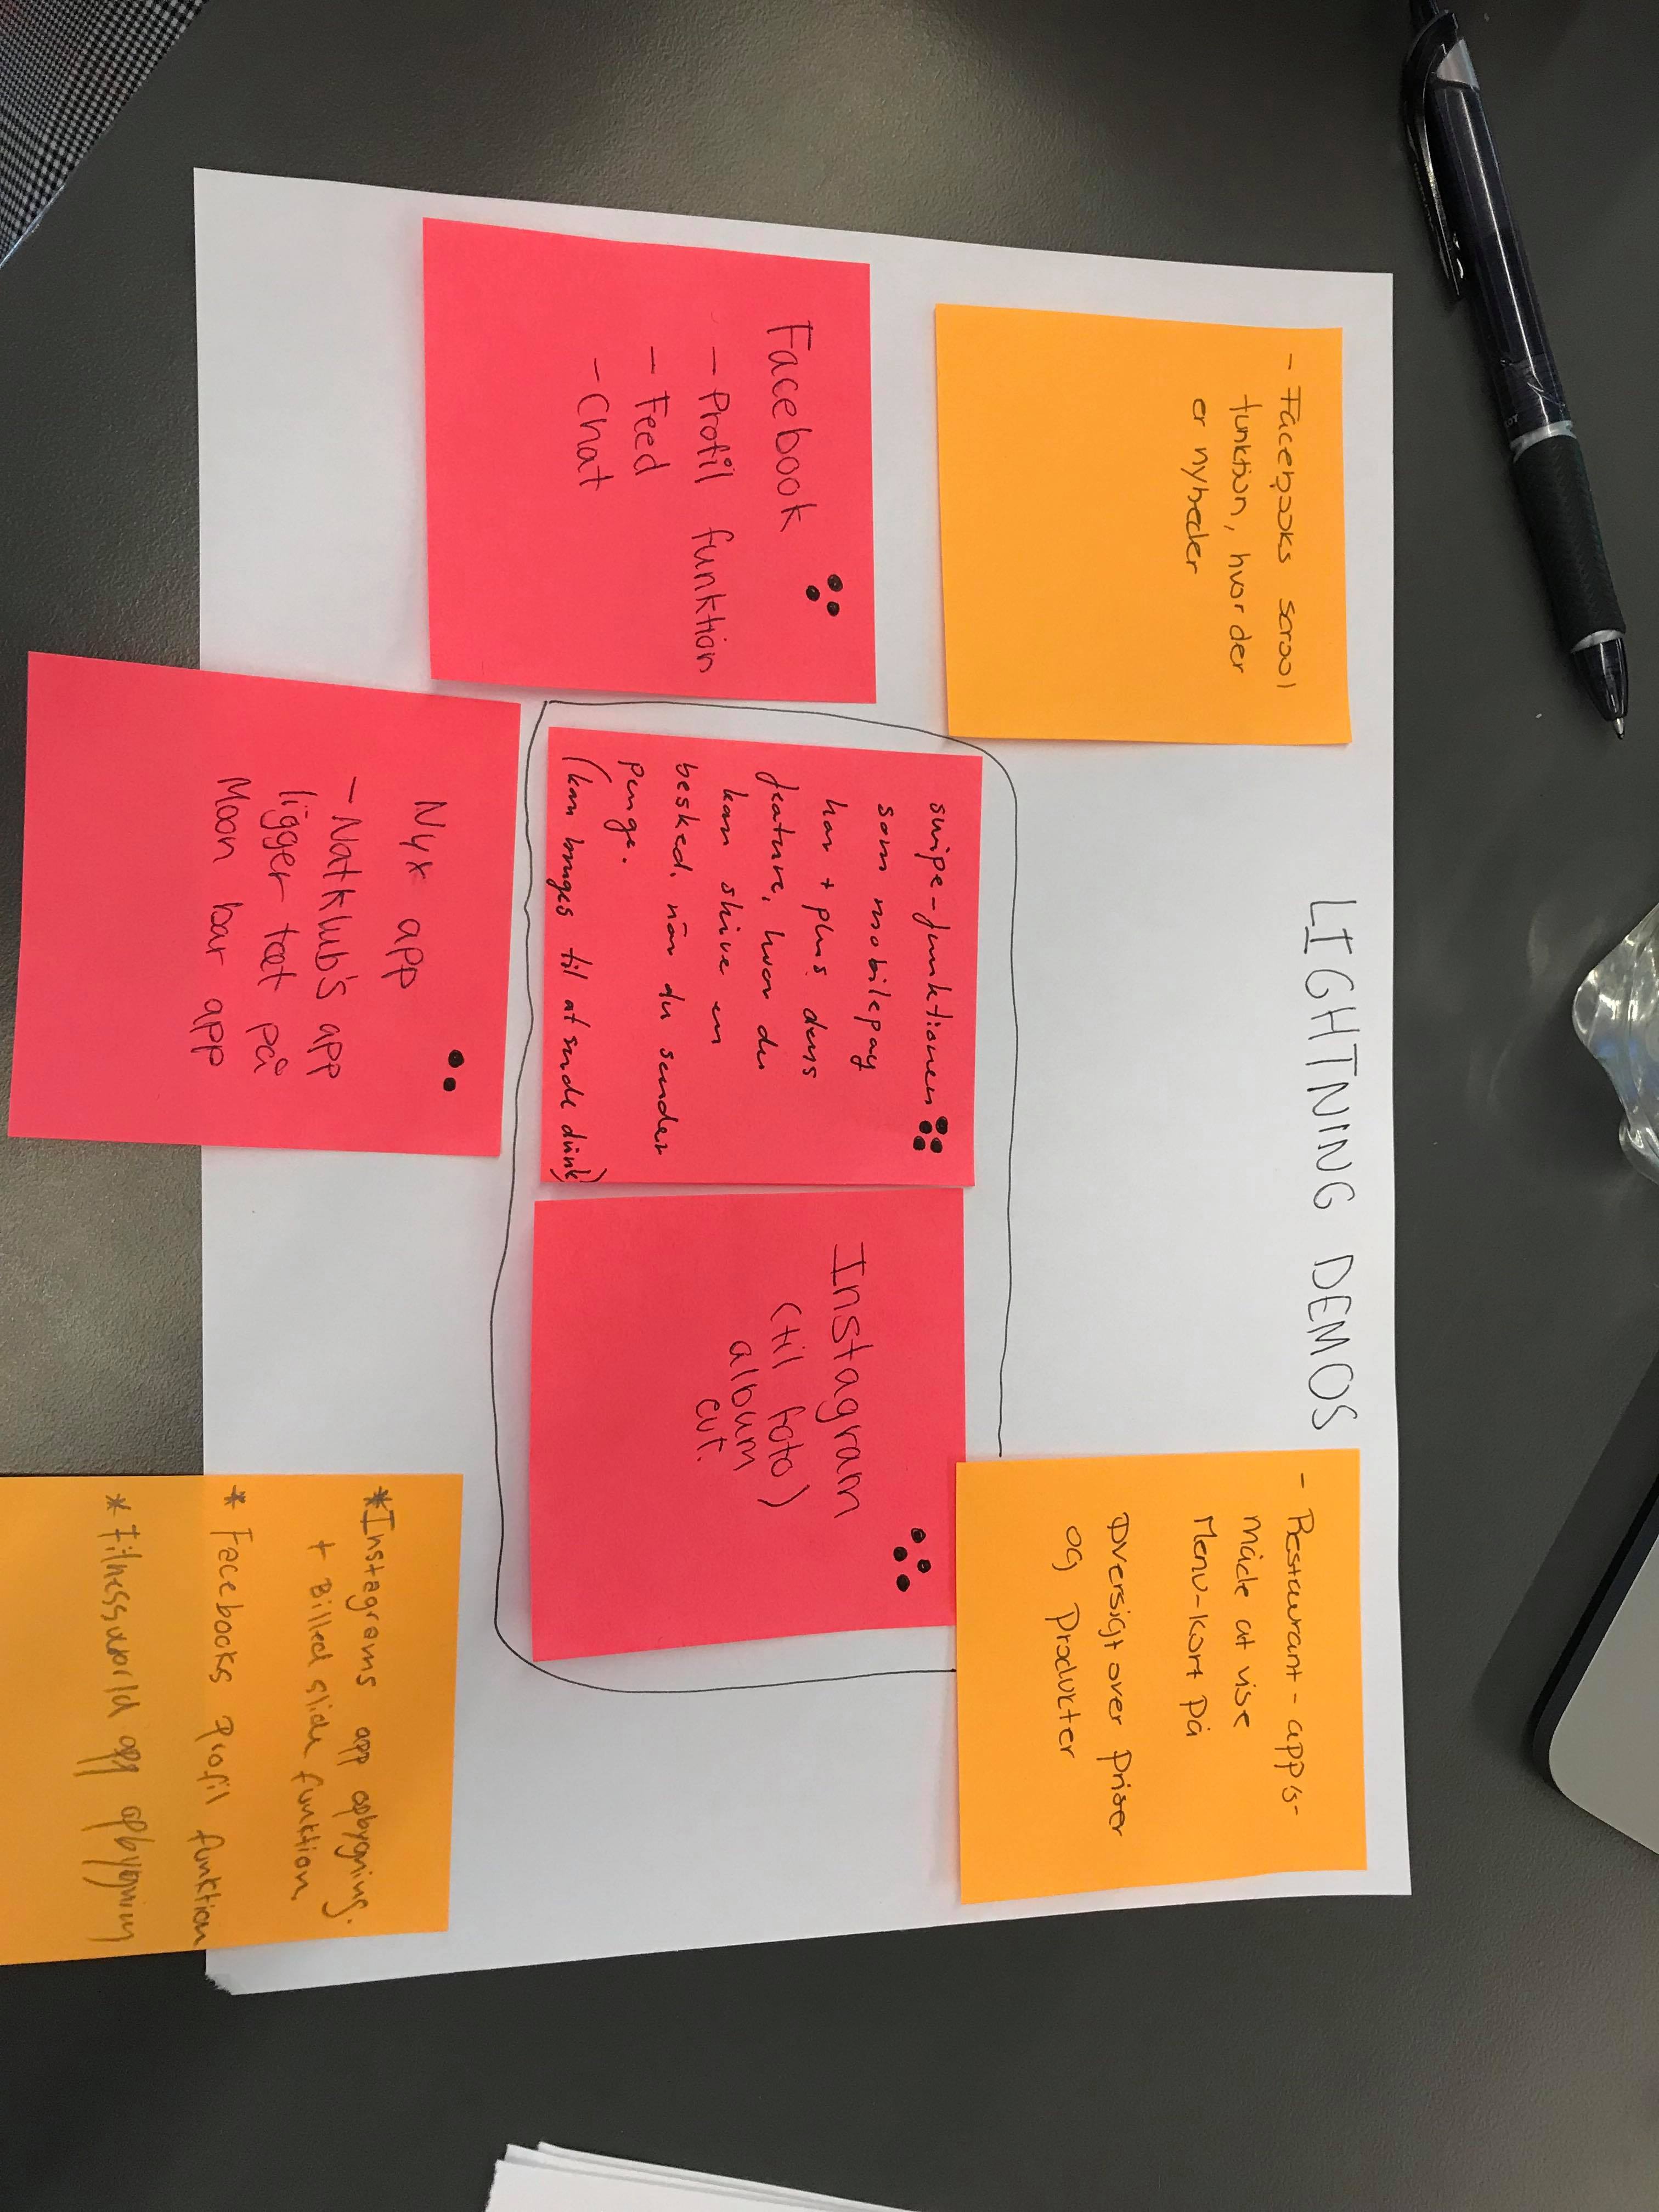 LIGHTNING DEMOS
- Facebooks scrool
funktion, hvor der
er nyheder
- Restaurant-app's-
måde at vise
Menu-kort på
Oversigt over Priser
og Produkter
swipe-funktionen
som mobilepay
har + plus dens
feature, hvor du
kan skive en
besked. når du sender
penge.
(kan bruges til at sende drink)
Instagram
(til foto)
album
evt.
Facebook
- Profil funktion
- Feed
- Chat
Nyx app
- Natklub's app
ligger tæt på
Moon bar app
*Instagrams app opbygning.
+ Billed slide funktion.
* Facebooks Profil funktion
* Fitnessworld app opbygning